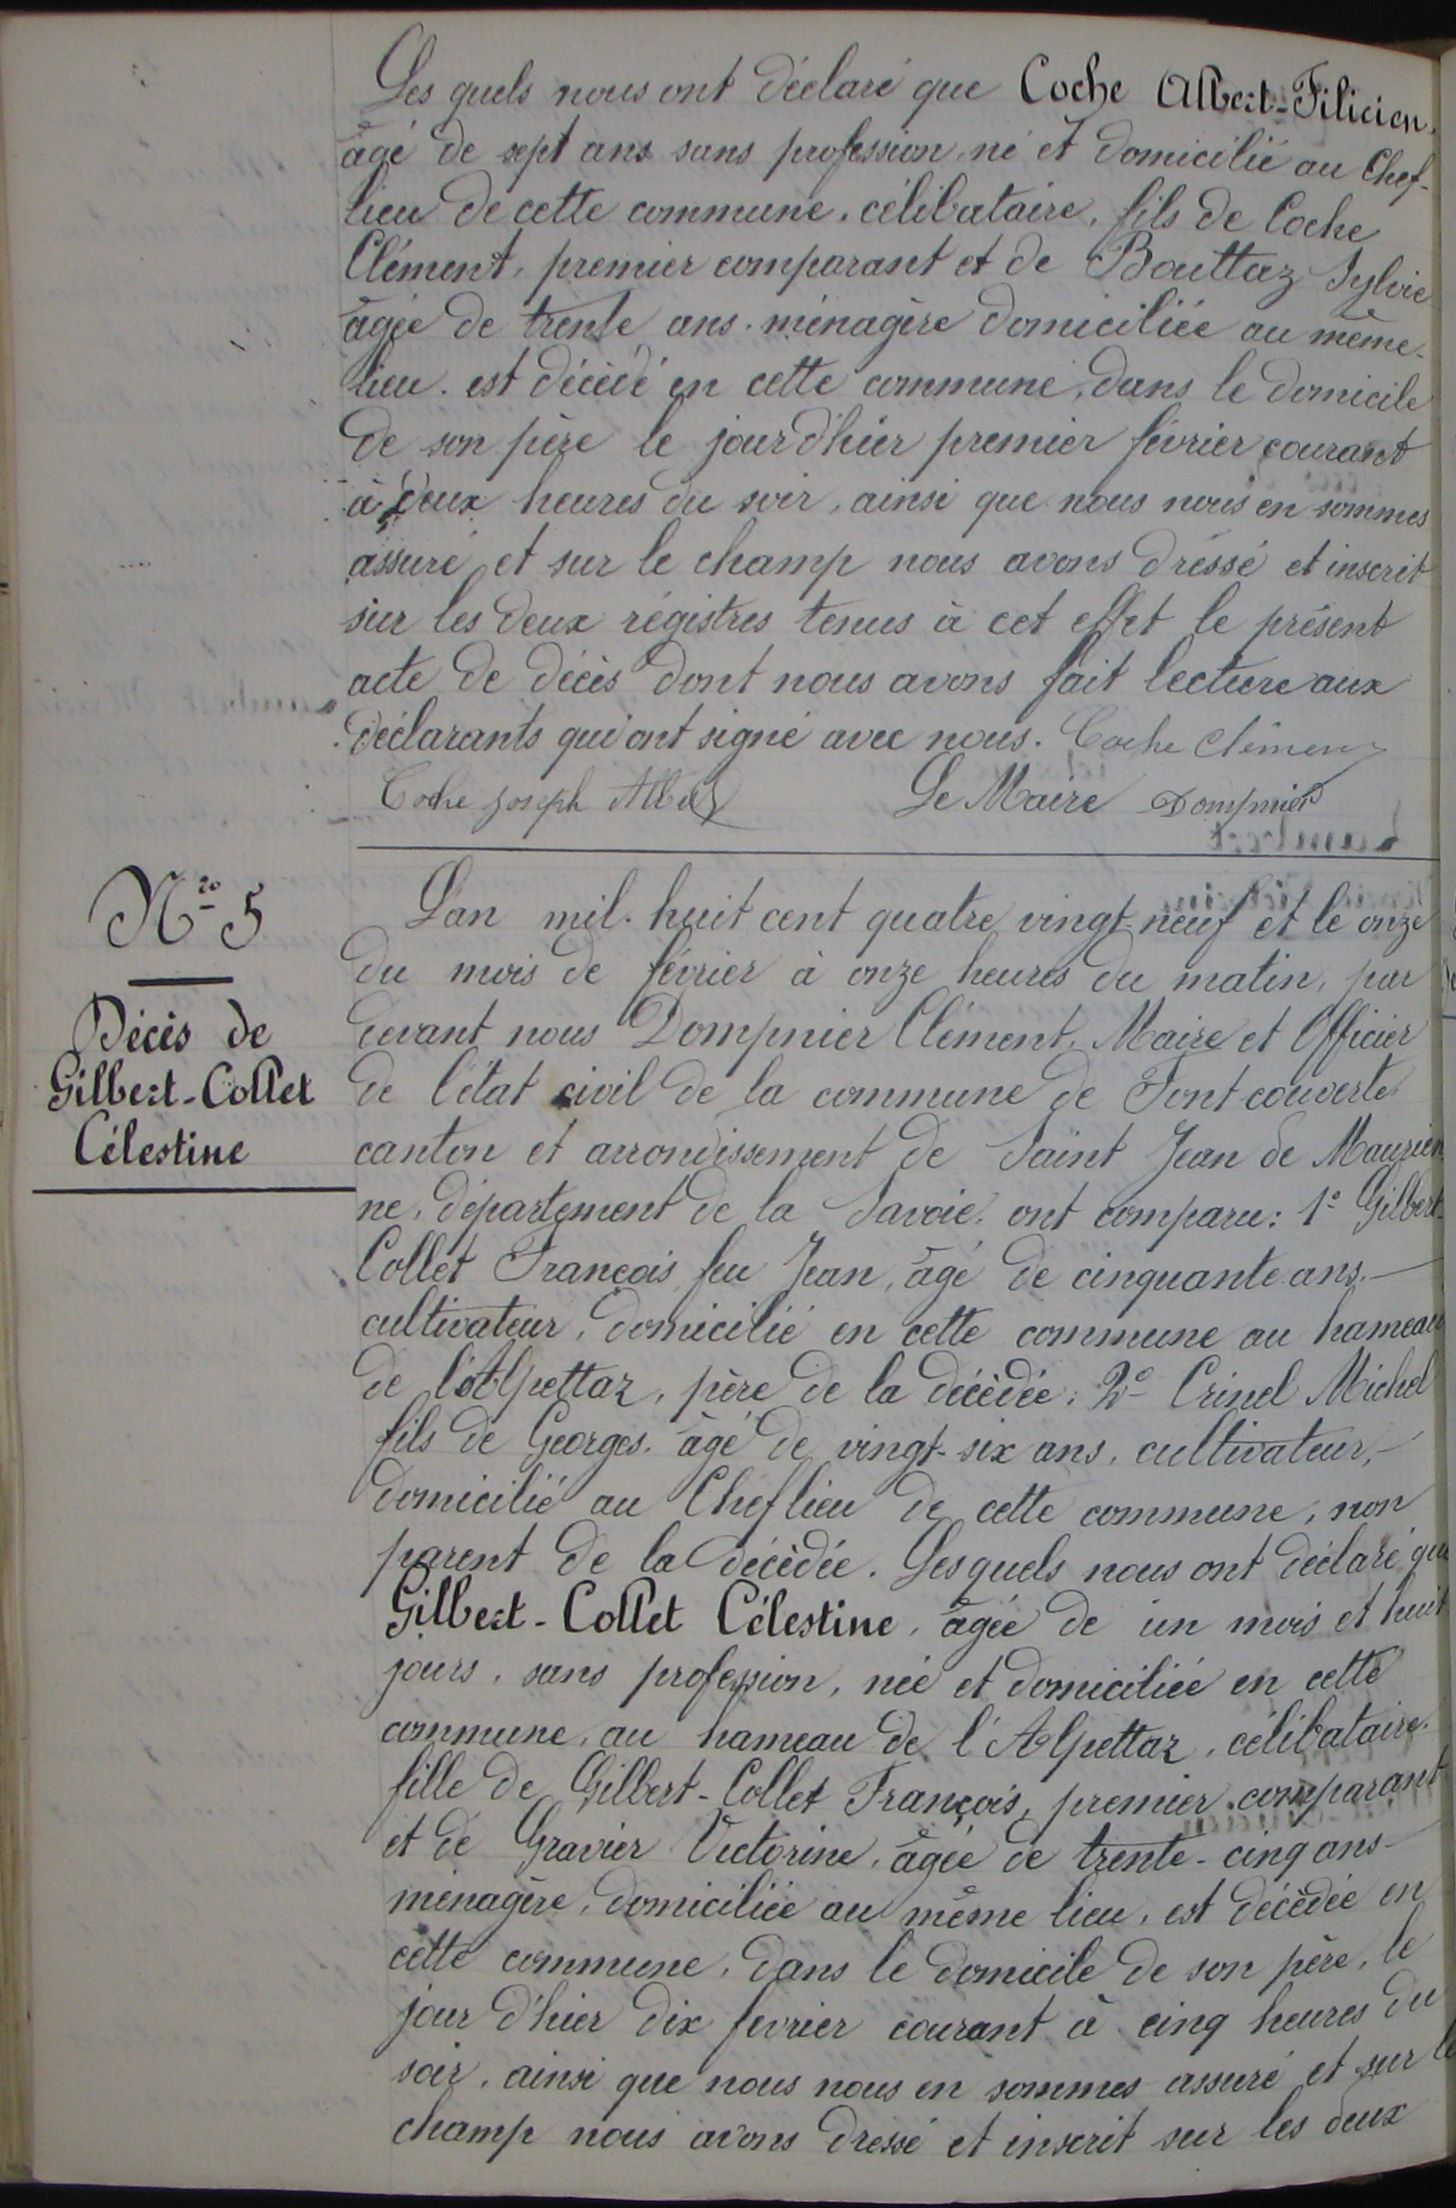 Les quels nous ont déclaré que Coche Albert-Filicien.
âgé de sept ans sans profession, né et domicilié au Chef-
lieu de cette commune, célibataire, fils de Coche
Clément, premier comparant et de Bouttaz Sylvie
âgée de trente ans. ménagère domiciliée au même-
lieu. est décédé en cette commune, dans le domicile
de son père le jour d'hier premier février courant
à deux heures du soir, ainsi que nous nous en sommes
assuré et sur le champ nous avons dréssé et inscrit
sur les deux régistres tenus à cet effet le présent
acte de décès dont nous avons fait lecture aux
déclarants qui ont signé avec nous. Coche Clément
Coche Joseph Albert Le Maire Dompnier
Nro 5
Décès de
Gilbert-Collet
Célestine
L'an mil. huit cent quatre vingt-neuf et le onze
du mois de février à onze heures du matin, par
devant nous Dompnier Clément, Maire et Officier
de l'état civil de la commune de Font-couverte
canton et arrondissement de Saint Jean de Maurien
ne, département de la Savoie, ont comparu: 1º Gilbert-
Collet François feu Jean, âgé de cinquante ans.-
cultivateur, domicilié en cette commune au hameau
de l'Alpettaz, père de la décédée; 2º Crinel Michel
fils de Georges. âgé de vingt-six ans, cultivateur,-
domicilié au Chef lieu de cette commune, non
parent de la décédée. Lesquels nous ont déclaré que
Gilbert-Collet Célestine, âgée de un mois et huit
jours, sans profession, née et domiciliée en cette
commune, au hameau de l'Alpettaz, célibataire.
fille de Gilbert-Collet François, premier comparant
et de Gravier Victorine, âgée de trente-cinq ans-
ménagère, domiciliée au même lieu, est décédée en
cette commune, dans le domicile de son père, le
jour d'hier dix fevrier courant à cinq heures du
soir, ainsi que nous nous en sommes assuré et sur le
champ nous avons dressé et inscrit sur les deux